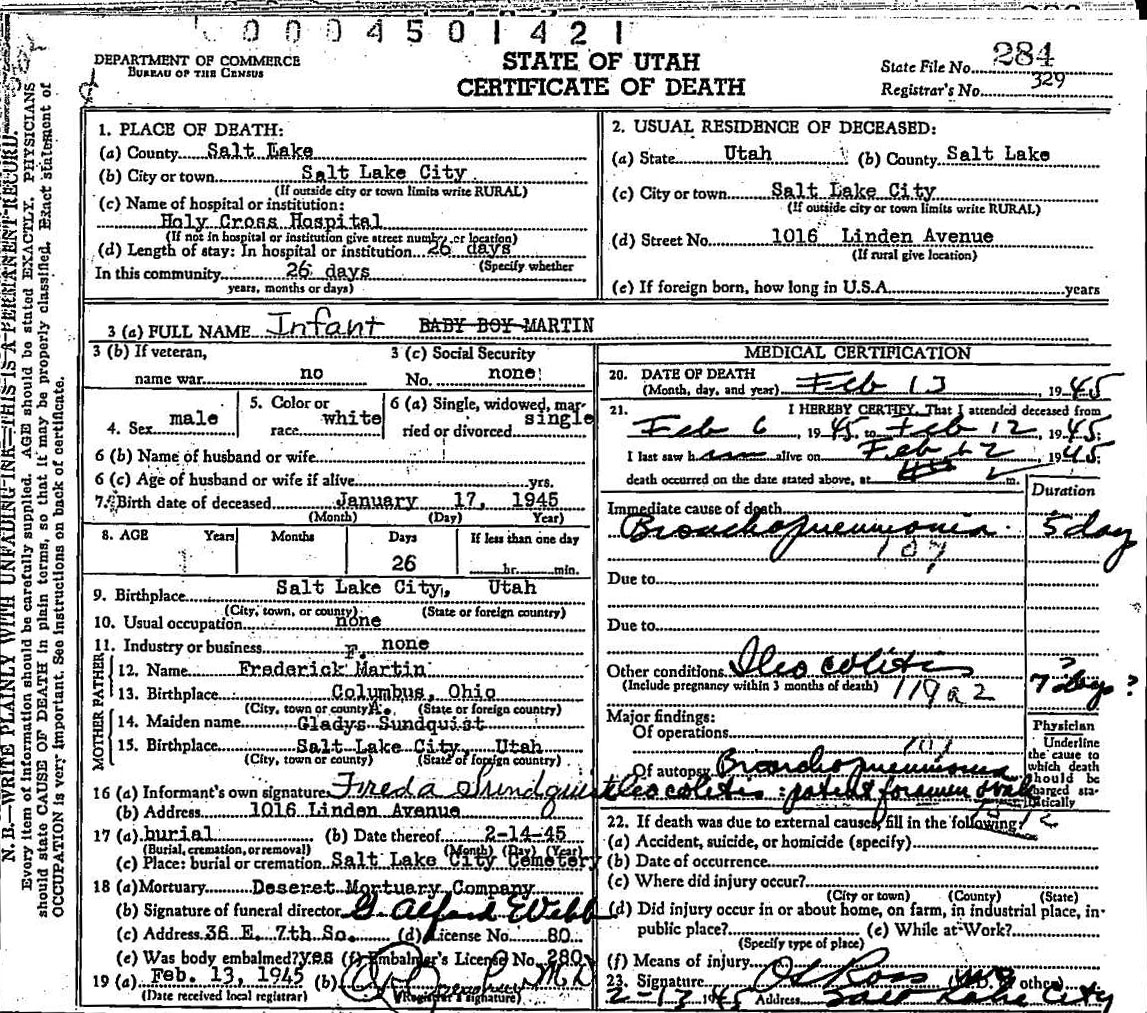 0004501421
DEPARTMENT OF COMMERCE
BUREAU OF THE CENSUS
STATE OF UTAH
CERTIFICATE OF DEATH
State File No. 284
Registrar's No. 329
N. B.—WRITE PLAINLY WITH UNFADING INK—THIS IS A PERMANENT RECORD.
Every item of information should be carefully supplied. AGE should be stated EXACTLY. PHYSICIANS
should state CAUSE OF DEATH in plain terms, so that it may be properly classified. Exact statement of
OCCUPATION is very important. See instructions on back of certificate.
1. PLACE OF DEATH:
(a) County Salt Lake
(b) City or town Salt Lake City
(If outside city or town limits write RURAL)
(c) Name of hospital or institution:
Holy Cross Hospital
(If not in hospital or institution give street number or location)
(d) Length of stay: In hospital or institution 26 days
(Specify whether
In this community 26 days
years, months or days)
2. USUAL RESIDENCE OF DECEASED:
(a) State Utah (b) County Salt Lake
(c) City or town Salt Lake City
(If outside city or town limits write RURAL)
(d) Street No. 1016 Linden Avenue
(If rural give location)
(e) If foreign born, how long in U.S.A. years
3 (a) FULL NAME Infant BABY BOY MARTIN
3 (b) If veteran, 3 (c) Social Security
name war no No. none
4. Sex male 5. Color or race white 6 (a) Single, widowed, married or divorced single
6 (b) Name of husband or wife
6 (c) Age of husband or wife if alive yrs.
7. Birth date of deceased January 17, 1945
(Month) (Day) Year)
8. AGE Years Months Days If less than one day
26 hr. min.
9. Birthplace Salt Lake City, Utah
(City, town, or county) (State or foreign country)
10. Usual occupation none
11. Industry or business none
FATHER
12. Name Frederick F. Martin
13. Birthplace Columbus, Ohio
(City, town or county) (State or foreign country)
MOTHER
14. Maiden name Gladys A. Sundquist
15. Birthplace Salt Lake City, Utah
(City, town, or county) (State of foreign country)
16 (a) Informant's own signature Freda Sundquist
(b) Address 1016 Linden Avenue
17 (a) burial (b) Date thereof 2-14-45
(Burial, cremation, or removal) (Month) (Day) (Year)
(c) Place: burial or cremation Salt Lake City Cemetery
18 (a) Mortuary Deseret Mortuary Company
(b) Signature of funeral director G Alford Webb
(c) Address 36 E. 7th So. (d) License No. 80
(e) Was body embalmed? yes (f) Embalmer's License No. 280
19 (a) Feb. 13, 1945 (b) M D
(Date received local registrar) (Registrar's signature)
MEDICAL CERTIFICATION
20. DATE OF DEATH
(Month, day, and year) Feb 13, 1945
21. I HEREBY CERTIFY, That I attended deceased from
Feb 6, 1945 to Feb 12, 1945;
I last saw him alive on Feb 12 1945
death occurred on the date stated above, at m.
Duration
Immediate cause of death
Bronchopneumonia 5 day
107
Due to
Due to
Other conditions Ileocolitis 7 days?
(Include pregnancy within 3 months of death) 119a2
Major findings:
Of operations
107
Of autopsy Bronchopneumonia
Ileocolitis: patent foramen ovale
Physician
Underline
the cause to
which death
should be
charged statistically
22. If death was due to external causes, fill in the following:
(a) Accident, suicide, or homicide (specify)
(b) Date of occurrence
(c) Where did injury occur?
(City or town) (County) (State)
(d) Did injury occur in or about home, on farm, in industrial place, in
public place? (e) While at Work?
(Specify type of place)
(f) Means of injury
23. Signature O S Ross MD (M. D. other)
2-13 1945 Address Salt Lake City